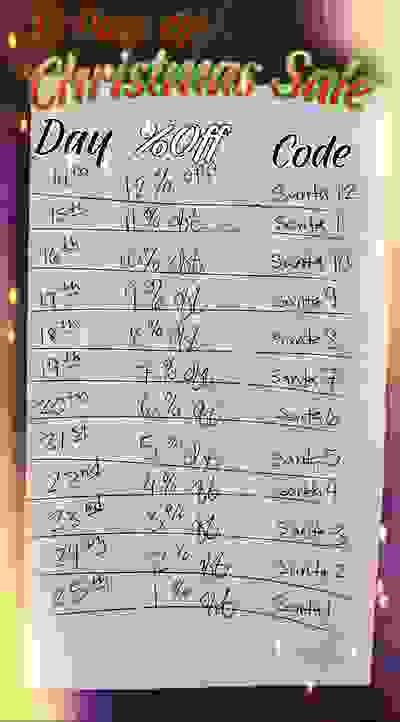 12 Days of
Christmas Sale
Day % Off Code
14th 12% off Santa 12
15th 11% off. Santa 11
16th 10% off. Santa 10
17th 9% off. Santa 9
18th 8% off. Santa 8
19th 7% off. Santa 7
20th 6% off. Santa 6
21st 5% off. Santa 5
22nd 4% off. Santa 4
23rd 3% off. Santa 3
24th 2% off. Santa 2
25th 1% off. Santa 1